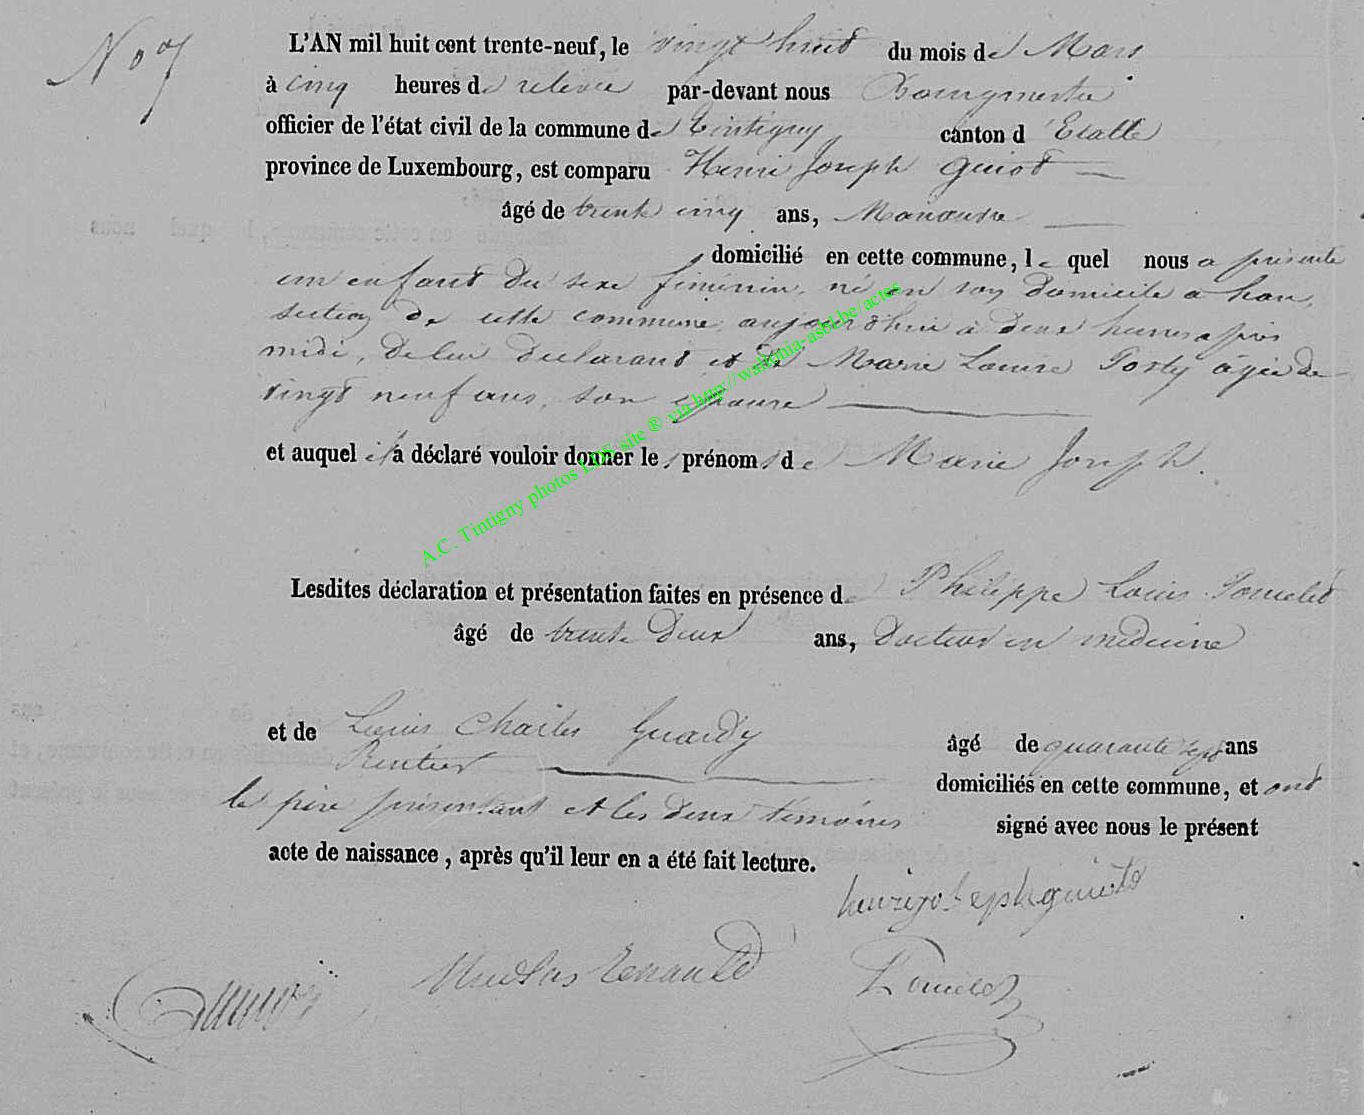 No 7
L'AN mil huit cent trente-neuf, le vingt huit du mois de Mars
à cinq heures de relevée par-devant nous Bourgmestre
officier de l'état civil de la commune de Tintigny, canton d'Etalle
province de Luxembourg, est comparu Henri Joseph Guiot
âgé de trente cinq ans, Manœuvre
domicilié en cette commune, le quel nous a présenté
un enfant du sexe féminin, né en son domicile a han,
section de cette commune, aujourd'hui à deux heures après
midi, de lui déclarant et de Marie Louise Posty âgée de
vingt neuf ans, son épouse
et auquel il a déclaré vouloir donner les prénoms de Marie Joseph.
Lesdites déclaration et présentation faites en présence de Philippe Louis
âgé de trente deux ans, Docteur en medecine
et de Louis Charles Guardy âgé de quarante sept ans
Rentier domiciliés en cette commune, et ont
le père présentant et les deux témoins signé avec nous le présent
acte de naissance, après qu'il leur en a été fait lecture.
henri joseph guiot
Nicolas Renauld
A.C. Tintigny photos LDS site ® via http://wallonia-asbl.be/actes